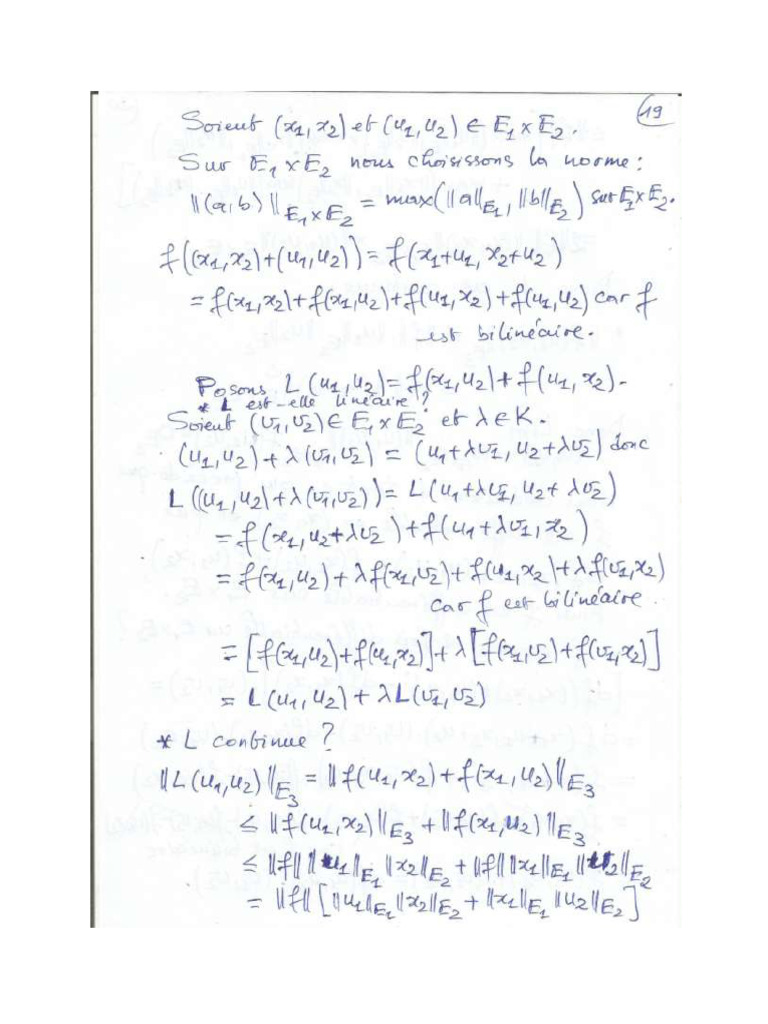 19
Soient (x1, x2) et (u1, u2) ∈ E1 x E2.
Sur E1 x E2 nous choisissons la norme :
||(a,b)||E1xE2 = max(||a||E1, ||b||E2) sur E1xE2.
f((x1,x2)+(u1,u2)) = f(x1+u1, x2+u2)
= f(x1,x2)+f(x1,u2)+f(u1,x2)+f(u1,u2) car f
est bilinéaire.
Posons L(u1,u2) = f(x1,u2)+f(u1,x2).
* L est-elle linéaire ?
Soient (v1,v2) ∈ E1xE2 et λ ∈ K.
(u1,u2)+λ(v1,v2) = (u1+λv1, u2+λv2) donc
L((u1,u2)+λ(v1,v2)) = L(u1+λv1, u2+λv2)
= f(x1, u2+λv2)+f(u1+λv1, x2)
= f(x1,u2)+λf(x1,v2)+f(u1,x2)+λf(v1,x2)
car f est bilinéaire.
= [f(x1,u2)+f(u1,x2)]+λ[f(x1,v2)+f(v1,x2)]
= L(u1,u2)+λL(v1,v2)
* L continue ?
||L(u1,u2)||E3 = ||f(u1,x2)+f(x1,u2)||E3
≤ ||f(u1,x2)||E3 + ||f(x1,u2)||E3
≤ ||f|| ||u1||E1 ||x2||E2 + ||f|| ||x1||E1 ||u2||E2
= ||f|| [||u1||E1 ||x2||E2 + ||x1||E1 ||u2||E2]